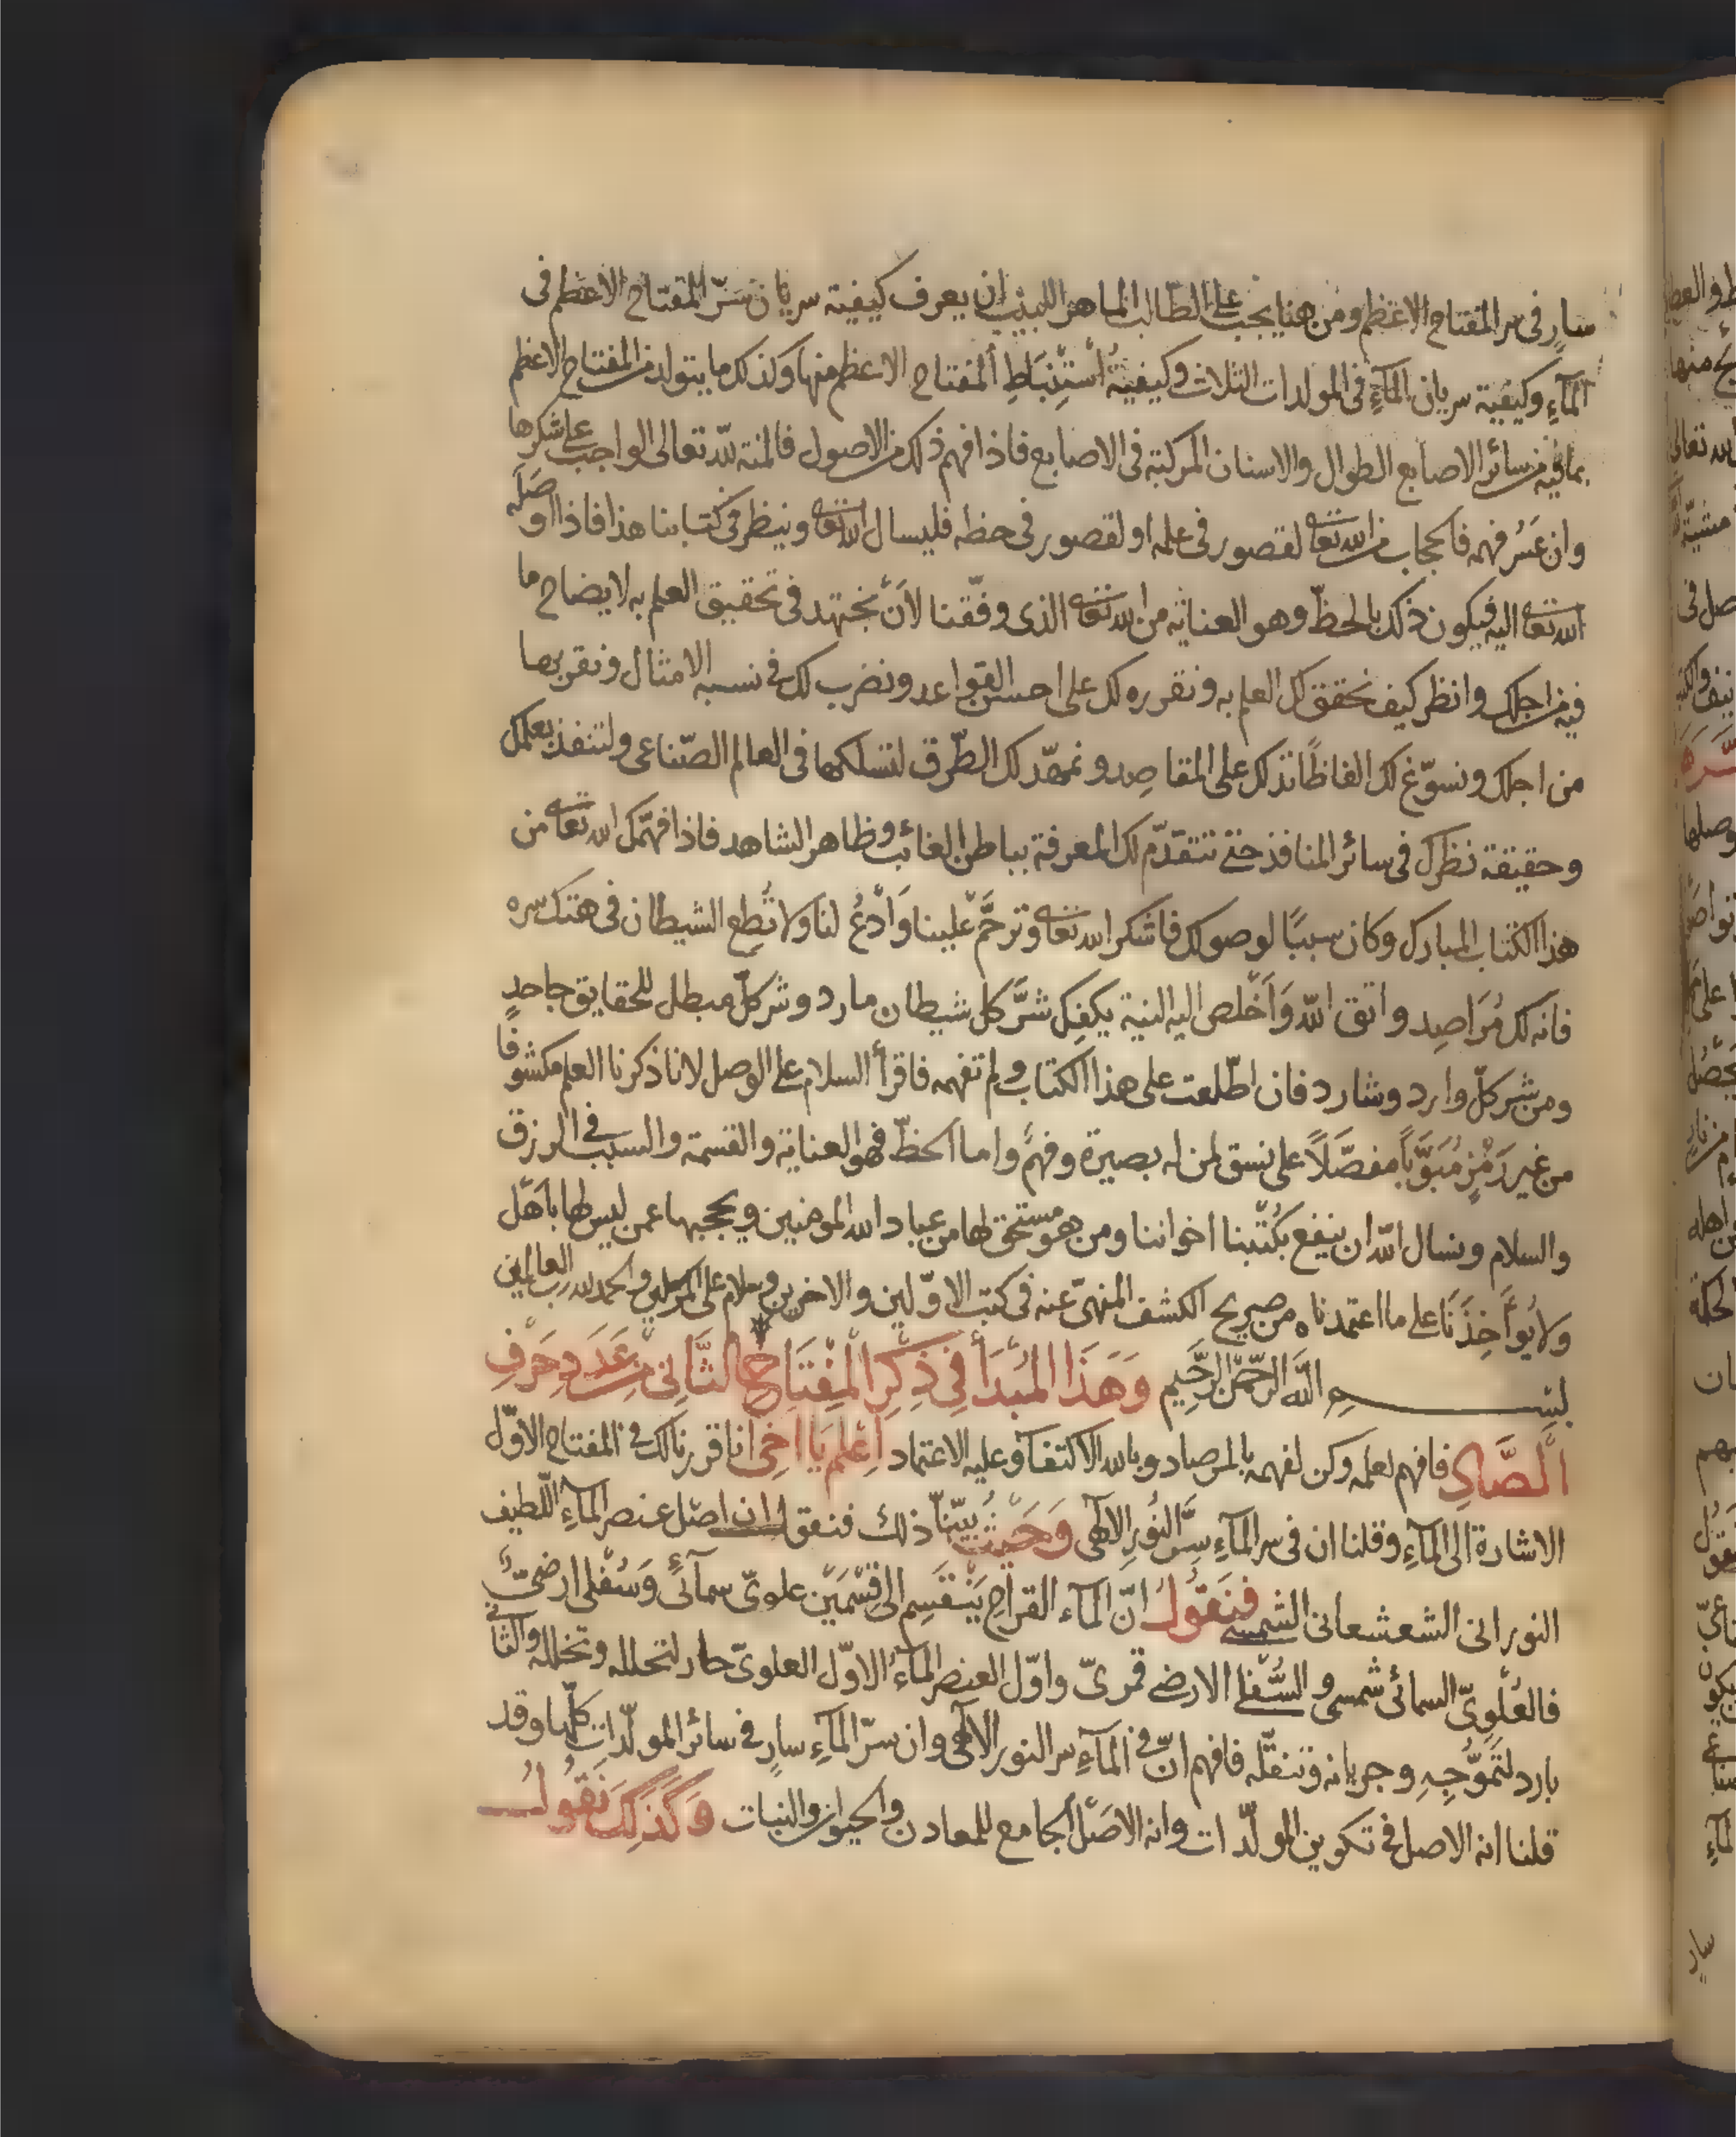 سارٍ فى سر المفتاح الاعظم ومن هنا يجب على الطالب الماهر اللبيب ان يعرف كيفية سريان سرّ المفتاح الاعظم فى
المآءِ وكيفية سريان المآءِ فى المولدات الثلاث وكيفيةُ أستِنْبَاطِ المفتاح الاعظم منها وكذلك ما يتولد من المفتاح الاعظم
بما فيه من سائر الاصابع الطوال والاسنان المركبة فى الاصابع فاذا فهم ذلك من الاصول فالمنة لله تعالى الواجب على شكرها
وان عَسُر فهمه فالحجاب من الله تعا لقصور فى علمه او لقصور فى حظه فليسال الله تعا وينظر فى كتابنا هذا فاذا اوصَلَه
الله تعا اليه فيكون ذلك بالحظّ وهو العناية من الله تعا الذى وفّقنا لأنْ نجتهد فى تحقيق العلم به لايضاح ما
فيه من اجلك وانظر كيف نحقق لك العلم به ونقرره لك على احسن القواعد ونضرب لك فى نسبه الامثال ونقربها
من اجلك ونسوّغ لك الفاظًا تدلك على المقاصِد ونمهّد لك الطّرق لتسلكها فى العالم الصّناعى ولتنفذ بعلمك
وحقيقة نظرك فى سائر المنافذ حتى تتقدّم لك المعرفة بباطن الغائب وظاهر الشاهد فاذا فهّمك الله تعا من
هذا الكتاب المبارك وكان سببًا لوصولك فاشكر الله تعا وترحَّم علينا وَادْعُ لنا ولا تُطِع الشيطان فى هتك سره
فانه لك مُرَاصِد واتق الله وَاَخْلص اليه النية يكفِك شرَّ كل شيطان مارد وشر كلّ مبطل للحقايق جاحدٍ
ومن شر كلّ وارد وشارد فان اطّلعت على هذا الكتاب ولم تفهمه فاقرأ السلام على الوصل لانا ذكرنا العلم مكشوفًا
من غير رَمْزٍ مُبَوَّبًا مفصَّلًا على نسق لمن له بصيرة وفهم واما الحظّ فهو العناية والقسمة والسبب فى الرزق
والسلام ونسال الله ان ينفع بكُتْبنا اخواننا ومن هو مستحق لها من عباد الله المومنين ويحجبها عمن ليس لها باَهْل
ولا يُواَخِذَنَا على ما اعتمدناه من صريح الكشف المنهىّ عنه فى كتب الاوّلين والاخرين وسلام على المرسلين والحمد لله رب العالمين
بسم الله الرحمن الرحيم وَهَذَا المَبْدَأ فِى ذِكْرِ المِفْتَاحِ الثَّانِى من عَدَدِ حَرْفِ
الصَّادِ فافهم لعلمه وكن لفهمه بالمرصاد وبالله الاكتفآ وعليه الاعتماد اِعْلم يَا اخى انا قررنا لك فى المفتاح الاوّل
الاشارة الى المآءِ وقلنا ان فى سر المآءِ سِرَّ النُورِ الالهى وَحَيْثُ بيّنّا ذلك فنقول ان اصْل عنصر المآءِ اللّطيف
النورانى الشعشعانى الشمسى فنَقُولُ انّ المآء القراح يَنْقَسِم الى قِسْمَيْن علوىّ سمآئىّ وَسُفْلى ارضىّ
فالعُلْوِىّ السمائى شمسى والسُّفْلى الارضى قمرىّ واوّل العنصر المآءُ الاوّل العلوىّ حار لتحلله وتخلله والثانى
بارد لتَمَوُّجِهِ وجريانه وتنقّله فافهم انّ فى المآءِ سر النور الالهى وان سرّ المآءِ سارٍ فى سائر المولّداتِ كلّها وقد
قلنا انه الاصل فى تكوين المولّدات وانه الاصْل الجامع للمعادن والحيوان والنبات وَكَذَلِكَ نَقُولُ
سارٍ